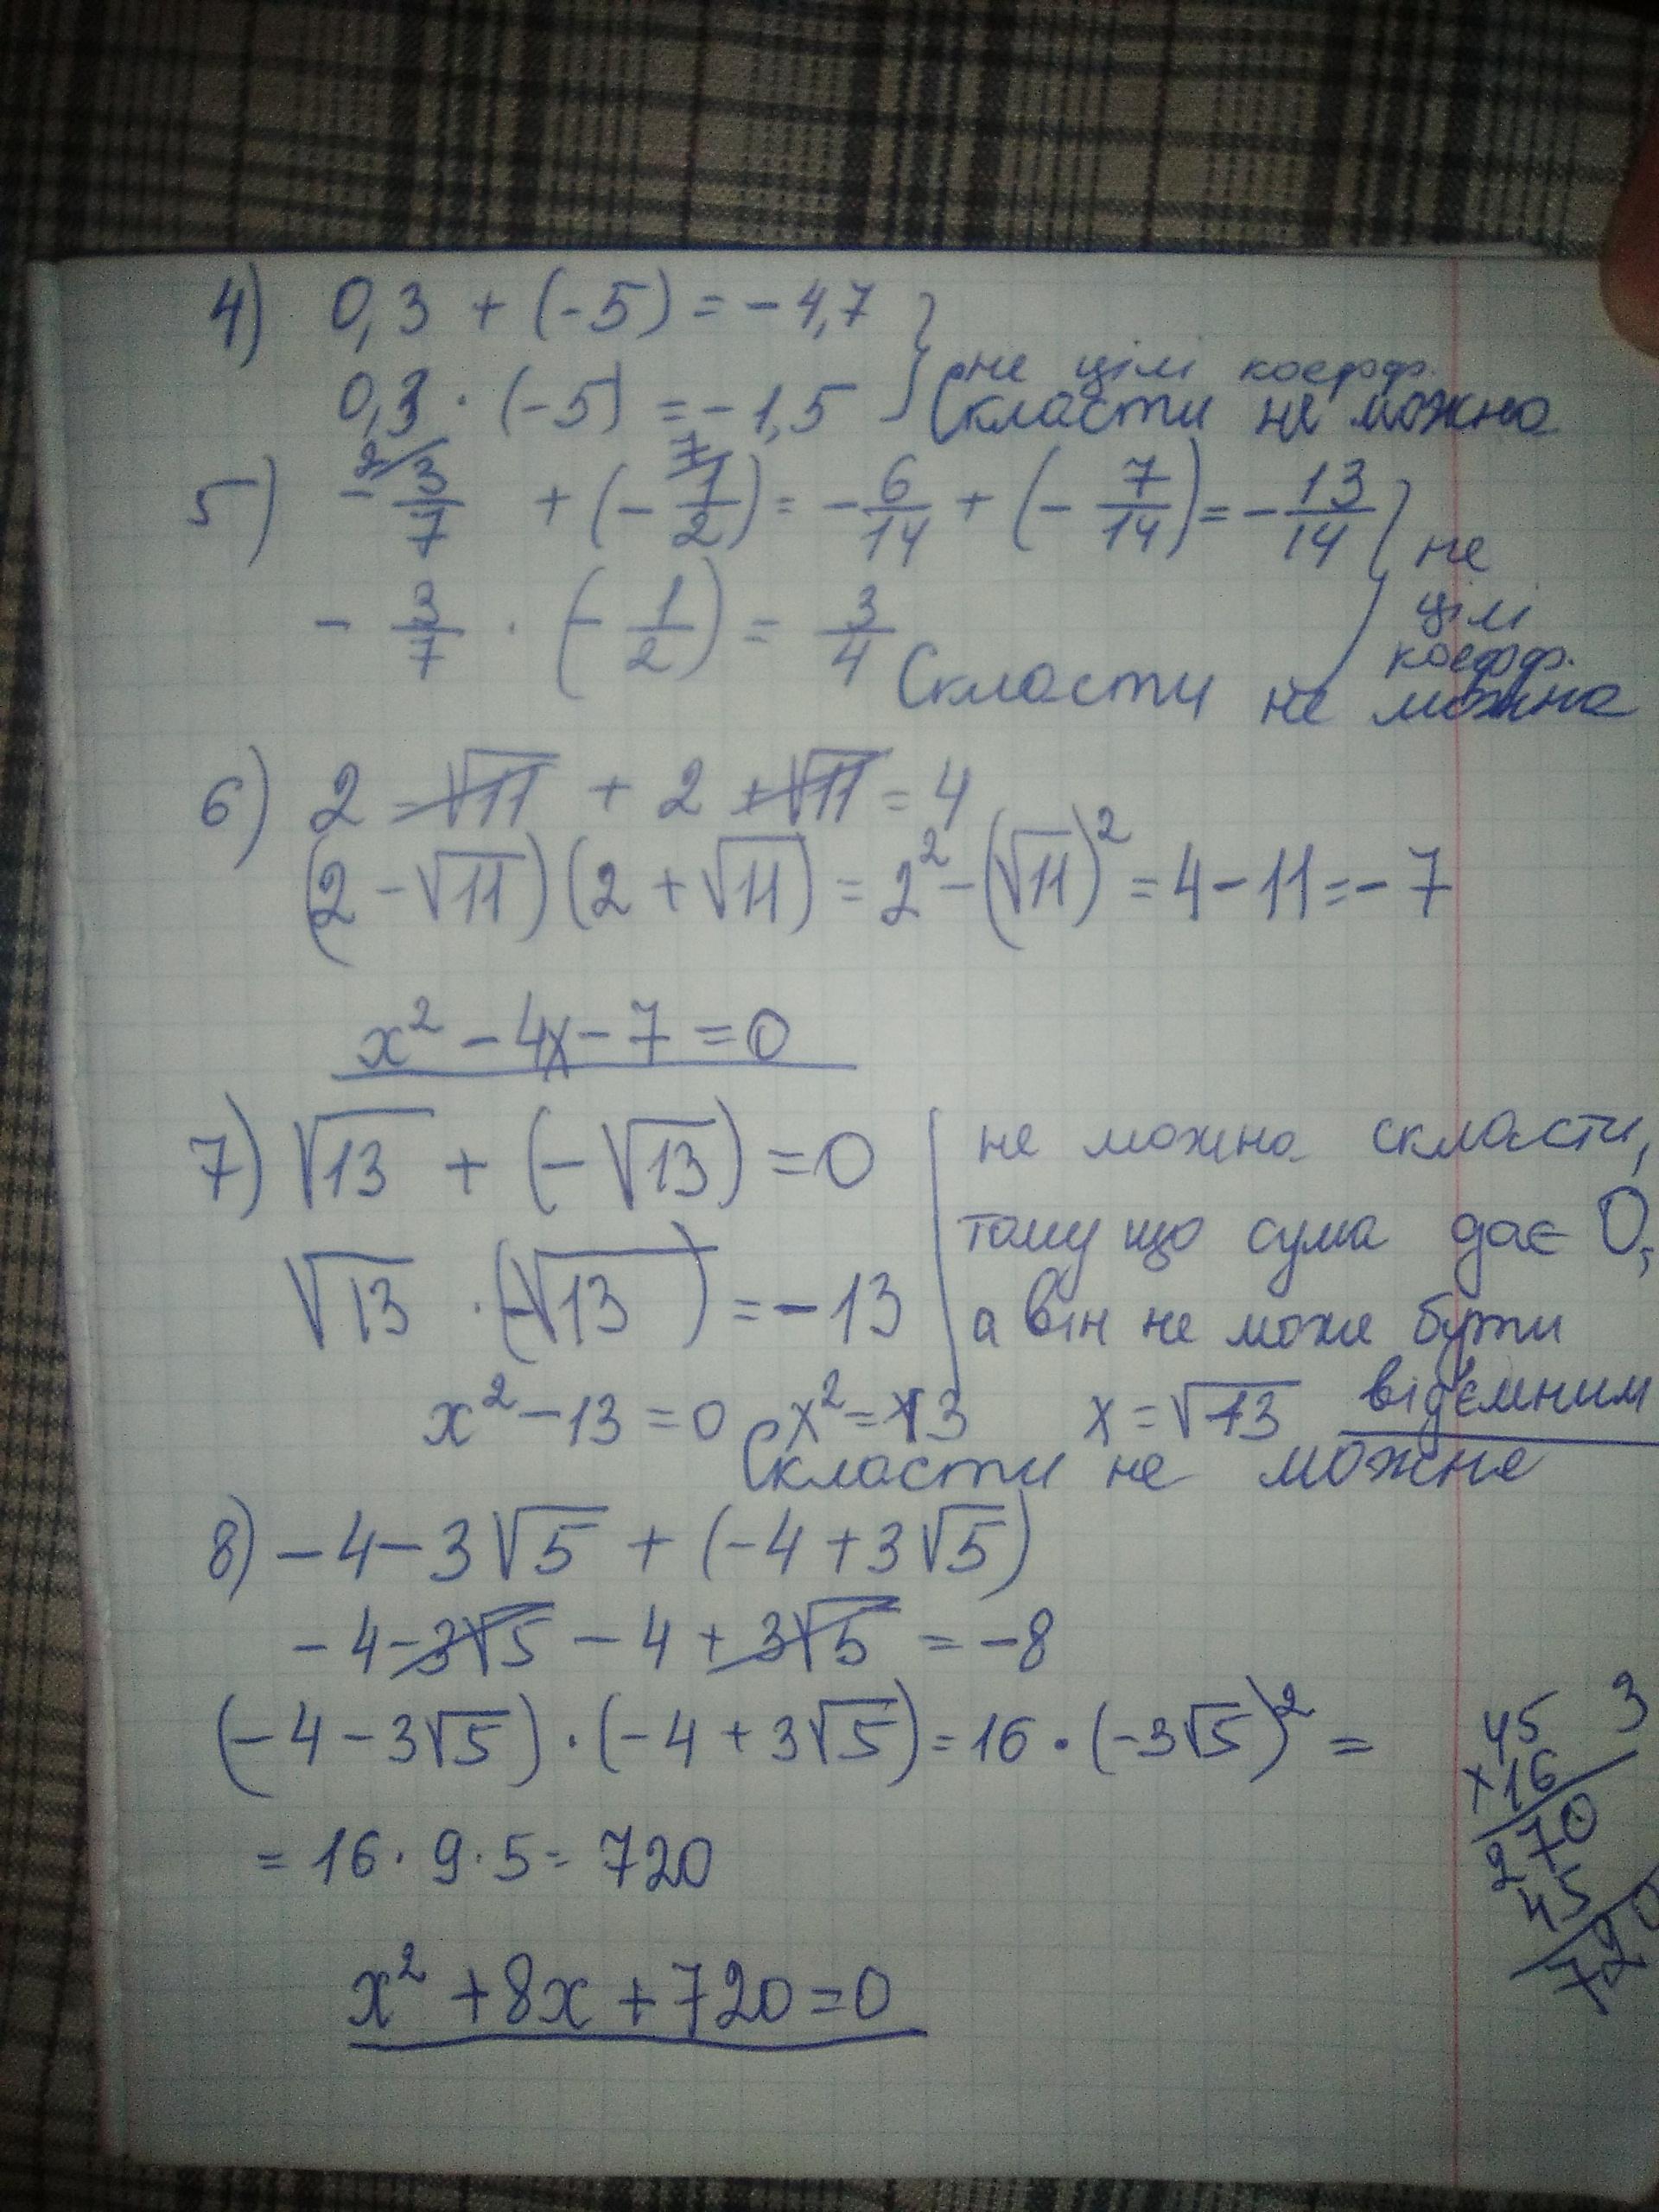 4) 0,3 + (-5) = -4,7
не цілі коефф.
0,3 · (-5) = -1,5 Скласти не можна
5) - 3/7 + (- 1/2) = - 6/14 + (- 7/14) = - 13/14 не
цілі
коефф.
- 3/7 · (- 1/2) = 3/4 Скласти не можна
6) 2 - √11 + 2 + √11 = 4
(2 - √11)(2 + √11) = 2² - (√11)² = 4 - 11 = -7
x² - 4x - 7 = 0
7) √13 + (-√13) = 0 не можна скласти,
тому що сума дає 0,
√13 · (-√13) = -13 а він не може бути
від'ємним
x² - 13 = 0 x² = 13 x = √13
Скласти не можне
8) -4 - 3√5 + (-4 + 3√5)
-4 - 3√5 - 4 + 3√5 = -8
(-4 - 3√5) · (-4 + 3√5) = 16 · (-3√5)² =
= 16 · 9 · 5 = 720
45 3
×16
270
45
720
x² + 8x + 720 = 0